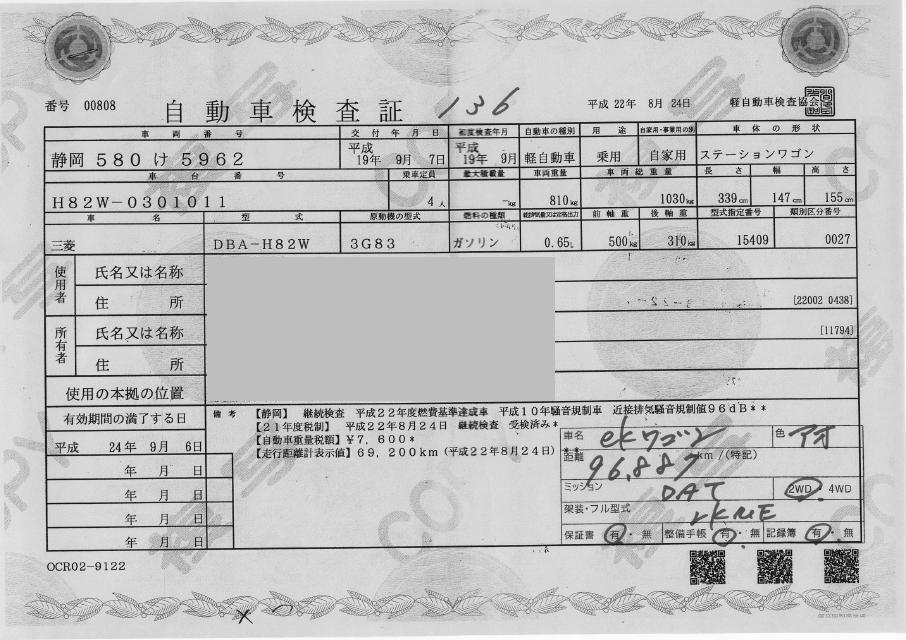 番号 00808
自動車検査証
136
平成 22年 8月 24日
軽自動車検査協会
車両番号 交付年月日 初度検査年月 自動車の種別 用途 自家用・事業用の別 車体の形状
静岡 580 け 5962 平成 19年 9月 7日 平成 19年 9月 軽自動車 乗用 自家用 ステーションワゴン
車台番号 乗車定員 最大積載量 車両重量 車両総重量 長さ 幅 高さ
H82W-0301011 4人 -kg 810kg 1030kg 339cm 147cm 155cm
車名 型式 原動機の型式 燃料の種類 総排気量又は定格出力 前軸重 後軸重 型式指定番号 類別区分番号
三菱 DBA-H82W 3G83 ガソリン 0.65L 500kg 310kg 15409 0027
使用者 氏名又は名称
住所 [22002 0438]
所有者 氏名又は名称 [11794]
住所
使用の本拠の位置
有効期間の満了する日
平成 24年 9月 6日
年 月 日
年 月 日
年 月 日
年 月 日
備考 【静岡】 継続検査 平成22年度燃費基準達成車 平成10年騒音規制車 近接排気騒音規制値96dB**
【21年度税制】 平成22年8月24日 継続検査 受検済み*
【自動車重量税額】¥7,600*
【走行距離計表示値】69,200km(平成22年8月24日)**
車名 ekワゴン 色 アオ
距離 96,887 km/(特記)
ミッション DAT 2WD・4WD
架装・フル型式
保証書 有・無 整備手帳 有・無 記録簿 有・無
OCR02-9122
複写
COPY